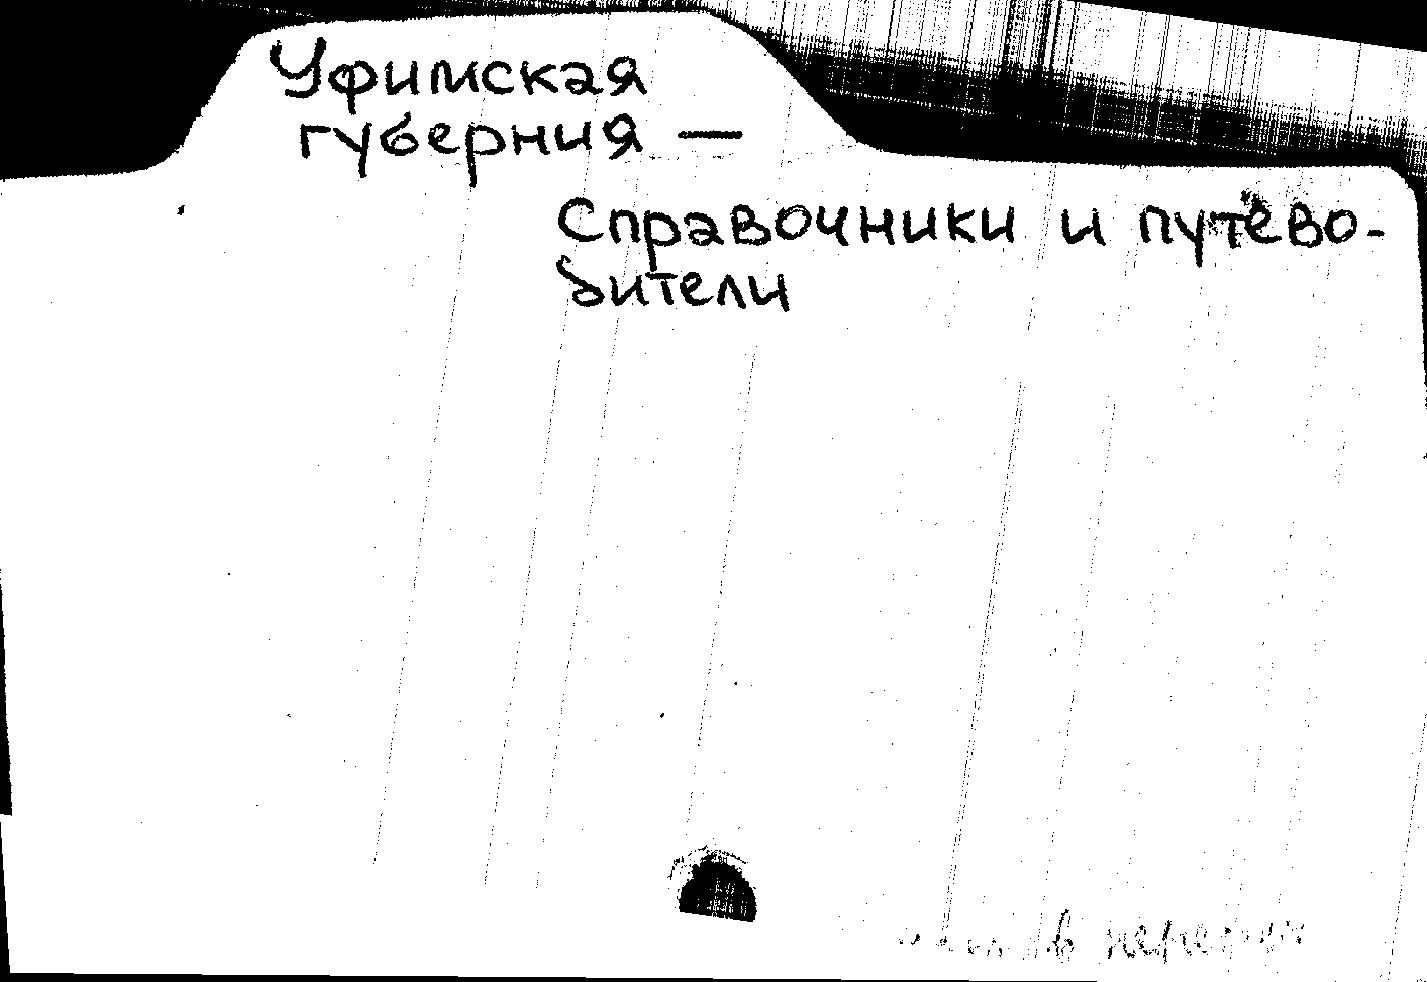 Уфимская
губерния —
Справочники и путево-
дители
в